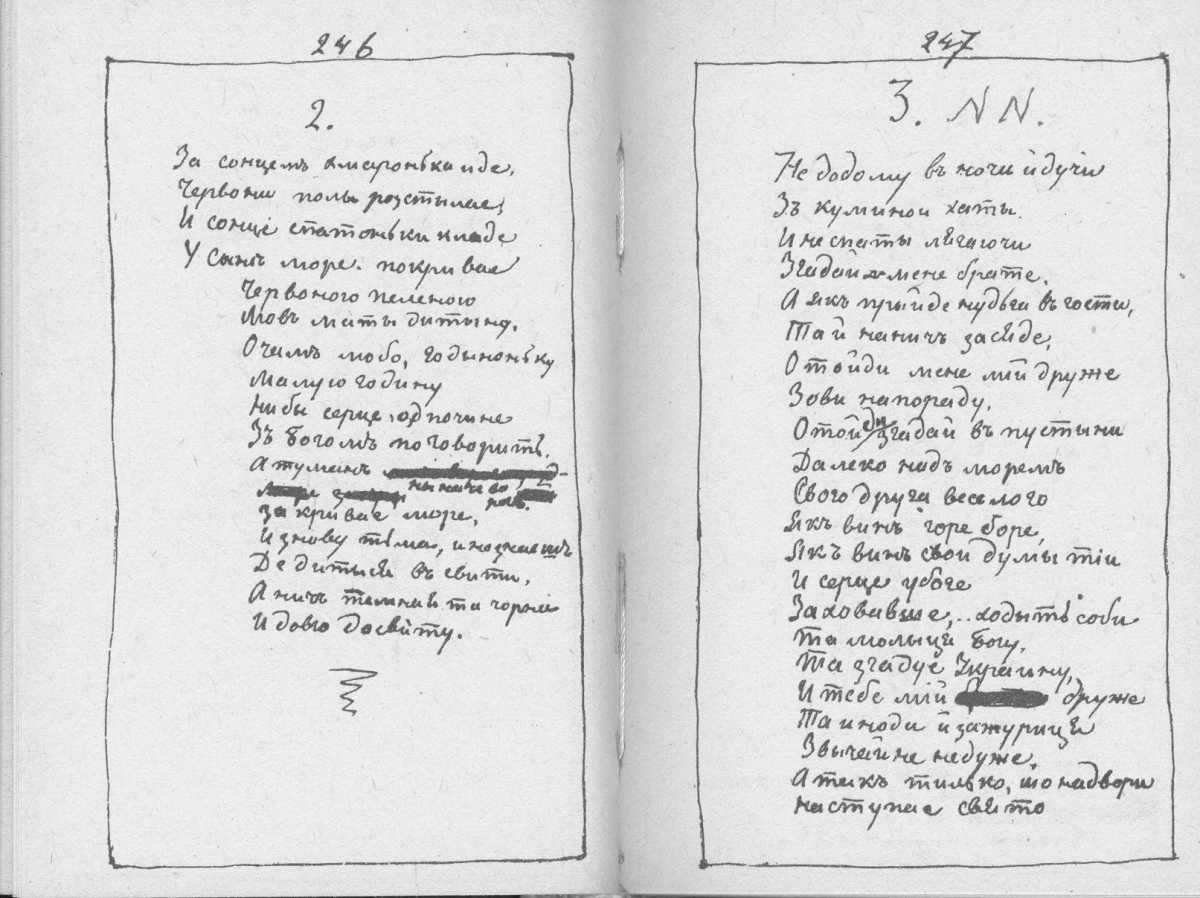 246
2.
За сонцемъ хмаронька иде,
Червони полы розстылае,
И сонце спатоньки кладе
У сынѣ море. покривае
Червоного пеленою
Мовъ маты дытыну.
Очамъ любо, годыноньку
Малую годину
Ниби серце одпочине
Зъ Богомъ поговорить.
А туманъ
неначе во
Закривае море,
И знову тьма,
Де дитьця въ свити,
А ничъ темная та чорная
И довго до свиту.
247
3. N N.
Не додому въ ночи йдучи
Зъ куминои хаты.
И не спаты лягаючи
Згадай мене брате.
А якъ прыйде нудьга въ гости,
Та й на ничъ засяде,
Отойди мене мій друже
Зови на пораду.
Отойди згадай въ пустыни
Далеко надъ моремъ
Свого друга веселого
Якъ винъ горе боре,
Якъ винъ свои думы тіи
И серце убоге
Заховавше,.. ходыть соби
Та молыця Богу,
Та згадуе Украину,
И тебе мій друже
Та иноди й зажурицця
Звычайне не дуже.
А такъ тилько, шо надвори
Наступае свято